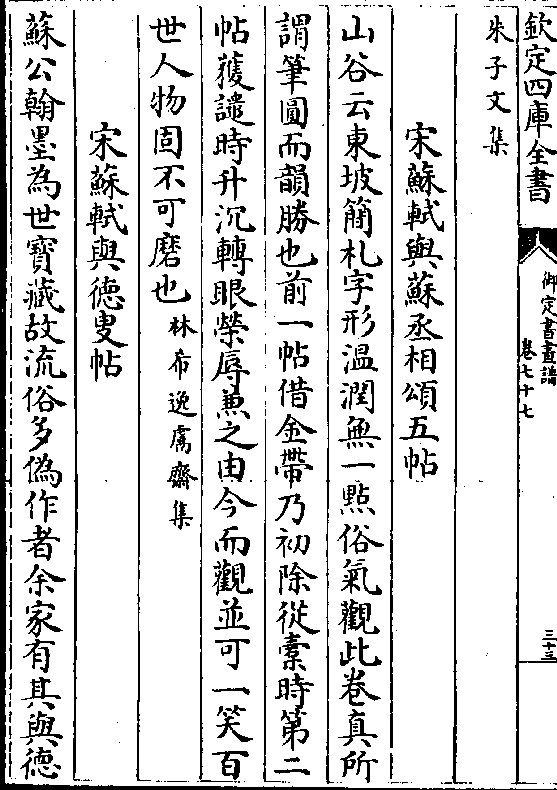 欽定四庫全書
御定書畫譜
卷七十七
三十三
朱子文集
宋蘇軾與蘇丞相頌五帖
山谷云東坡簡札字形溫潤無一點俗氣觀此卷真所
謂筆圓而韻勝也前一帖借金帶乃初除從橐時第二
帖獲譴時升沉轉眼榮辱兼之由今而觀並可一笑百
世人物固不可磨也林希逸鬳齋集
宋蘇軾與德叟帖
蘇公翰墨為世寶藏故流俗多偽作者余家有其與德